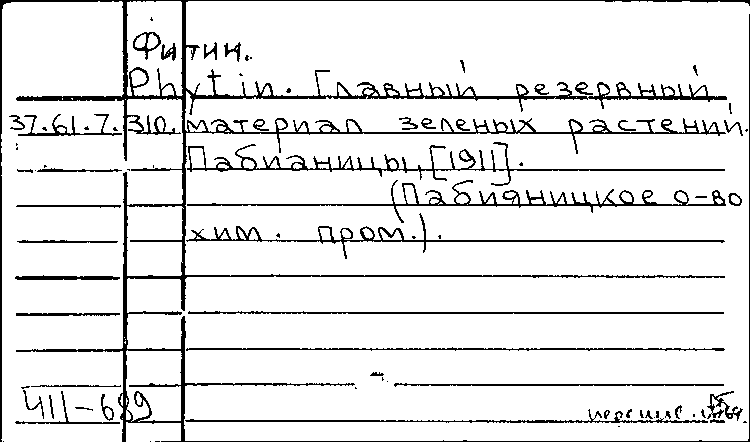 Фитин.
Phytin. Главный резервный
37.61.7.310. материал зеленых растений.
Пабианицы, [1911].
(Пабияницкое о-во
хим. пром.).
411-689